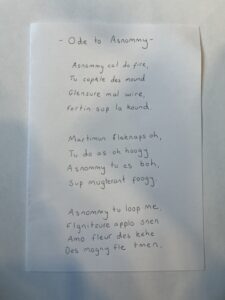 - Ode to Asnommy -
Asnommy cal do fire,
Tu capale des mound
Glensure mal wire,
Fortin sup la kound.
Martimun flaknaps oh,
Tu do as oh hoogy
Asnommy tu es boh,
Sup mugterant foogy.
Asnommy tu loop me,
Flgnitzure applo snen
Amo fleur des kehe
Des mogny fle tmen.